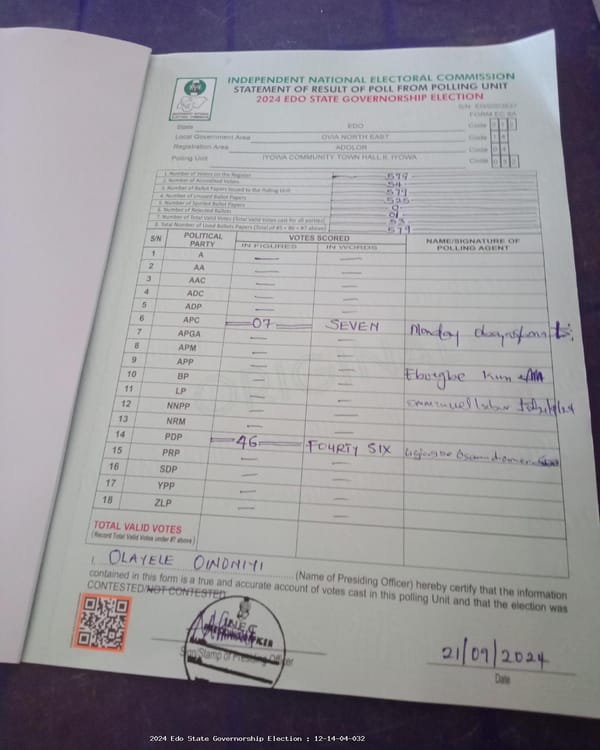 INDEPENDENT NATIONAL ELECTORAL COMMISSION
STATEMENT OF RESULT OF POLL FROM POLLING UNIT
2024 EDO STATE GOVERNORSHIP ELECTION
FORM EC 8A
State EDO Code
Local Government Area OVIA NORTH EAST Code
Registration Area ADOLOR Code
Polling Unit IYOWA COMMUNITY TOWN HALL II, IYOWA Code
1. Number of Voters on the Register 579
2. Number of Accredited Voters 54
3. Number of Ballot Papers Issued to the Polling Unit 579
4. Number of Unused Ballot Papers 525
5. Number of Spoiled Ballot Papers 0
6. Number of Rejected Ballots 01
7. Number of Total Valid Votes (Total Valid votes cast for all parties) 53
8. Total Number of Used Ballots Papers (Total of #5 + #6 + #7 above)
S/N POLITICAL PARTY VOTES SCORED NAME/SIGNATURE OF POLLING AGENT
IN FIGURES IN WORDS
1 A — —
2 AA — —
3 AAC — —
4 ADC — —
5 ADP — —
6 APC 07 SEVEN Monday
7 APGA — —
8 APM — —
9 APP — —
10 BP — —
11 LP — —
12 NNPP — —
13 NRM — —
14 PDP 46 FOURTY SIX
15 PRP — —
16 SDP — —
17 YPP — —
18 ZLP — —
TOTAL VALID VOTES
(Record Total Valid Votes under #7 above)
I, OLAYELE OINONIYI (Name of Presiding Officer) hereby certify that the information
contained in this form is a true and accurate account of votes cast in this polling Unit and that the election was
CONTESTED/NOT CONTESTED
INEC
Sign/Stamp of Presiding Officer
21/09/2024
Date
2024 Edo State Governorship Election : 12-14-04-032